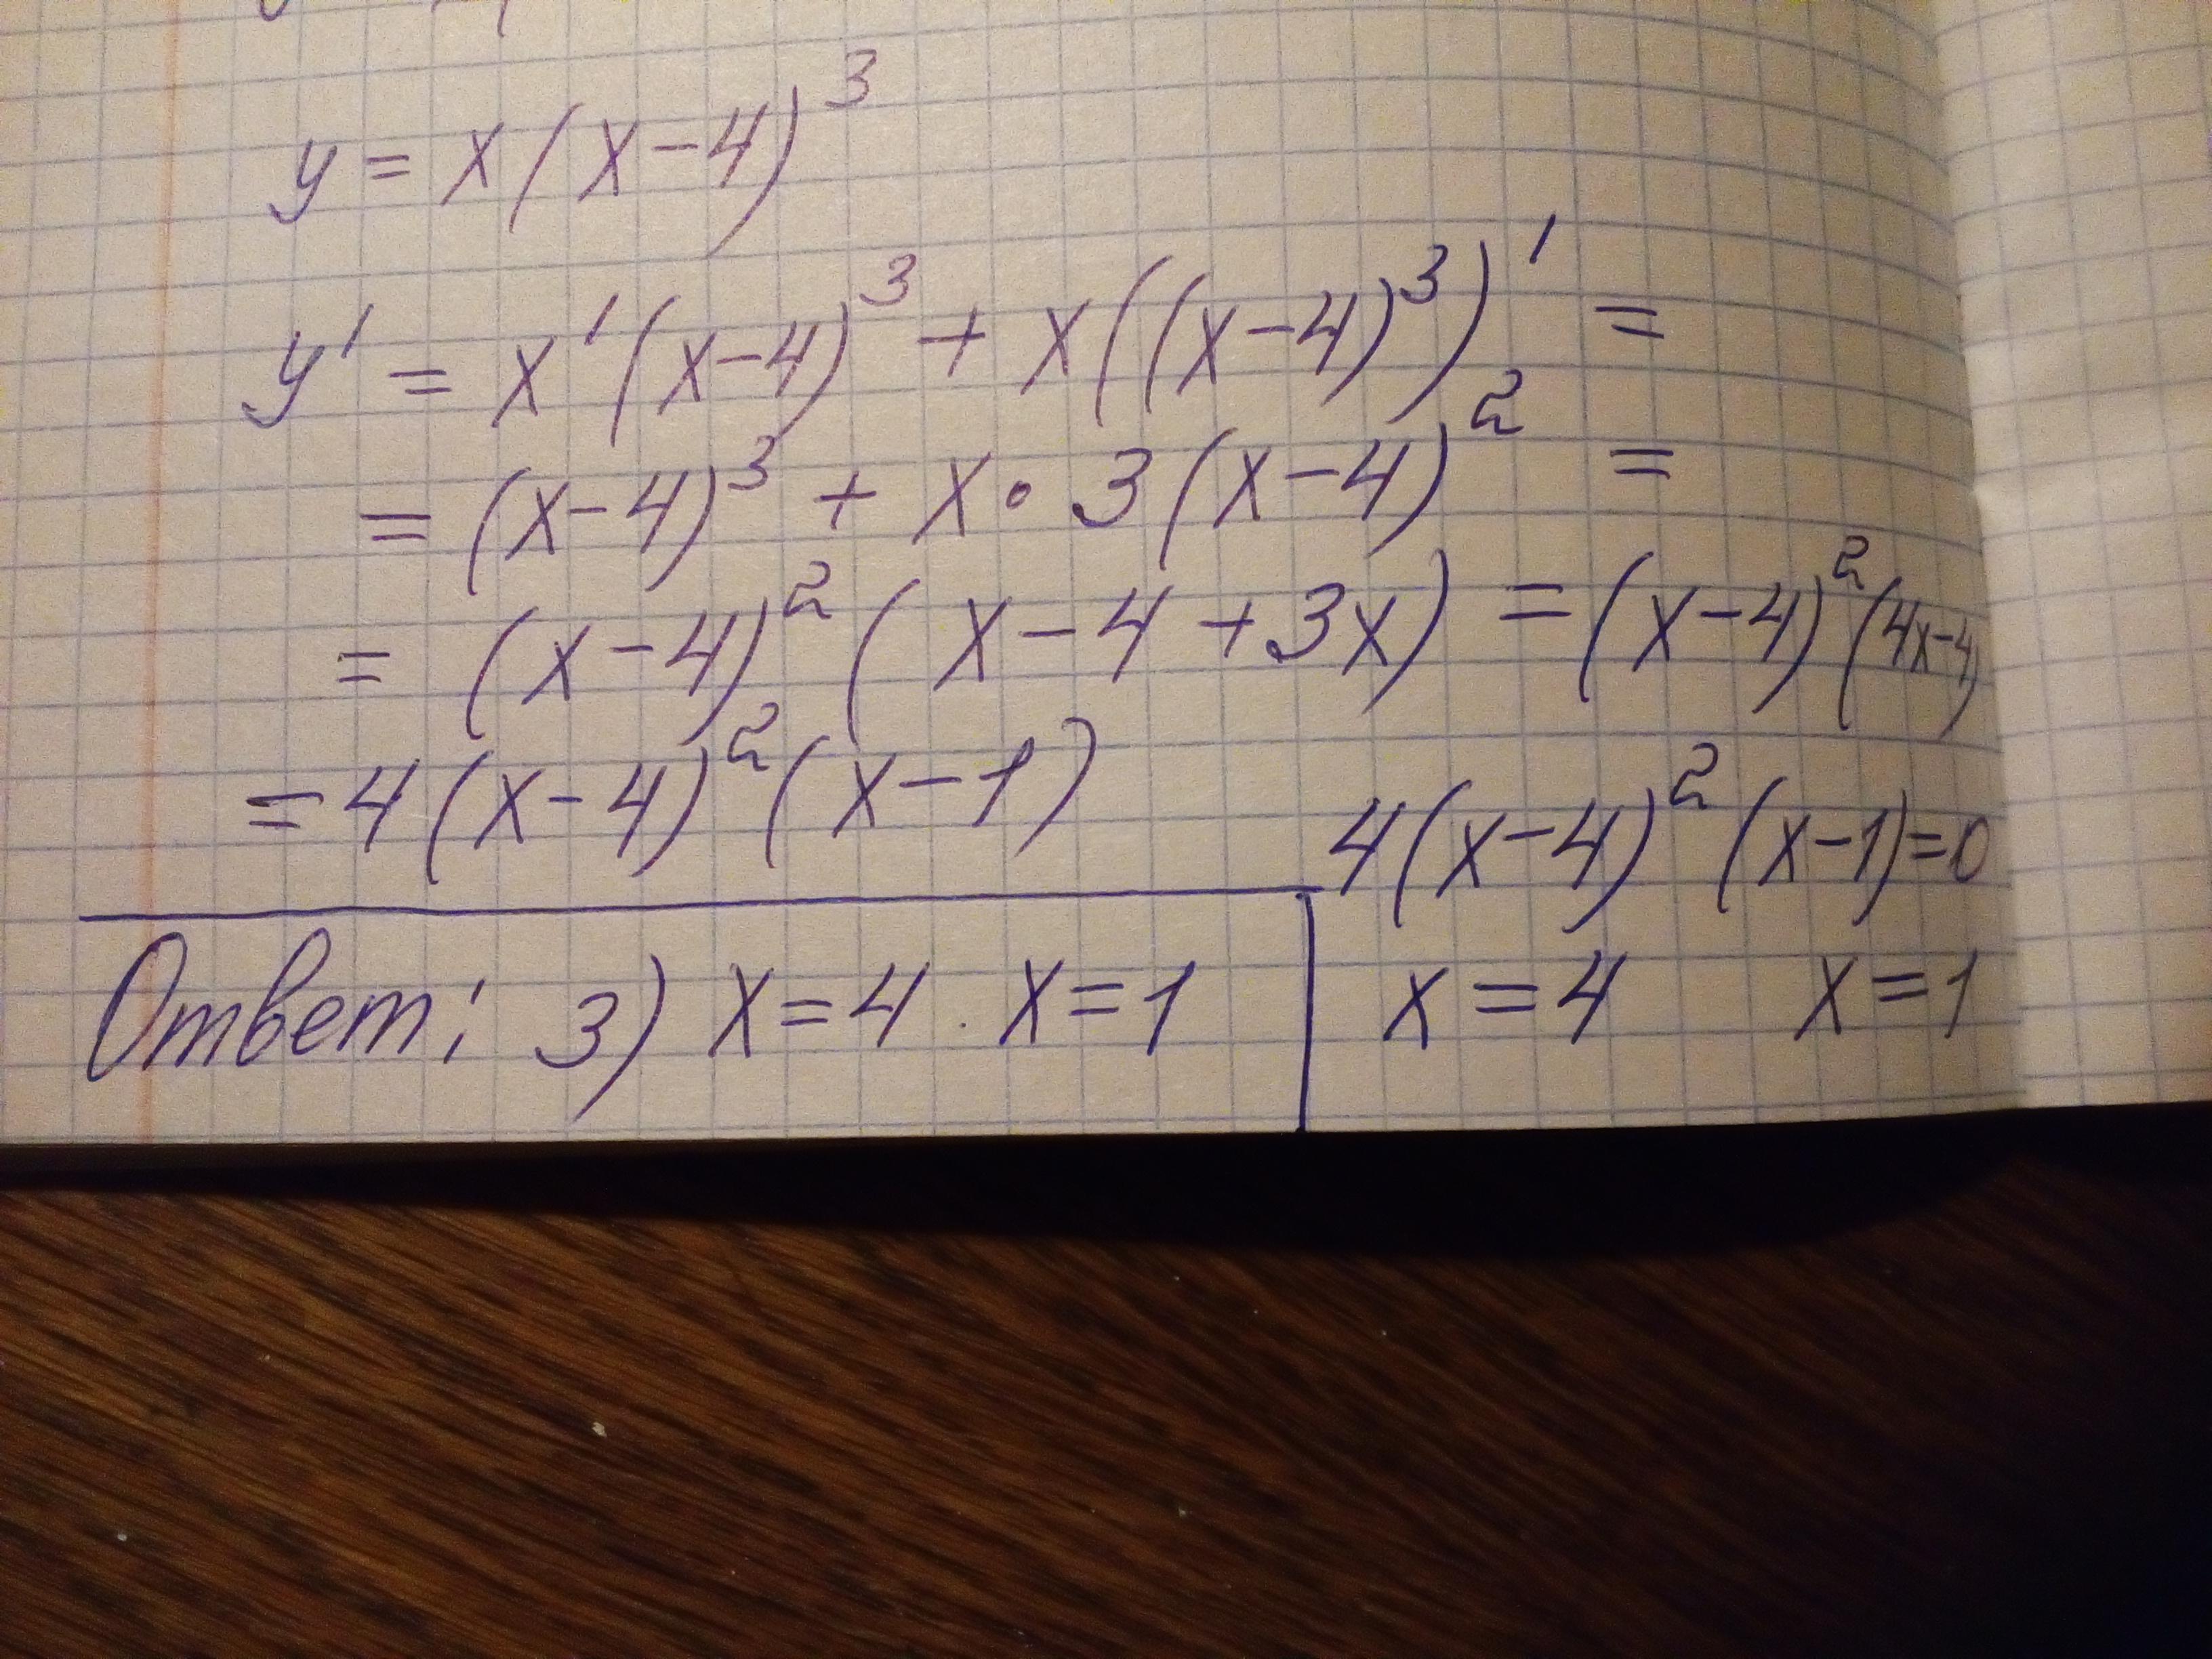 y = x(x-4)³
y' = x'(x-4)³ + x((x-4)³)' =
= (x-4)³ + x • 3(x-4)² =
= (x-4)² (x-4+3x) = (x-4)² (4x-4)
= 4(x-4)² (x-1)
4(x-4)² (x-1)=0
x = 4 x = 1
Ответ: 3) x=4 x=1